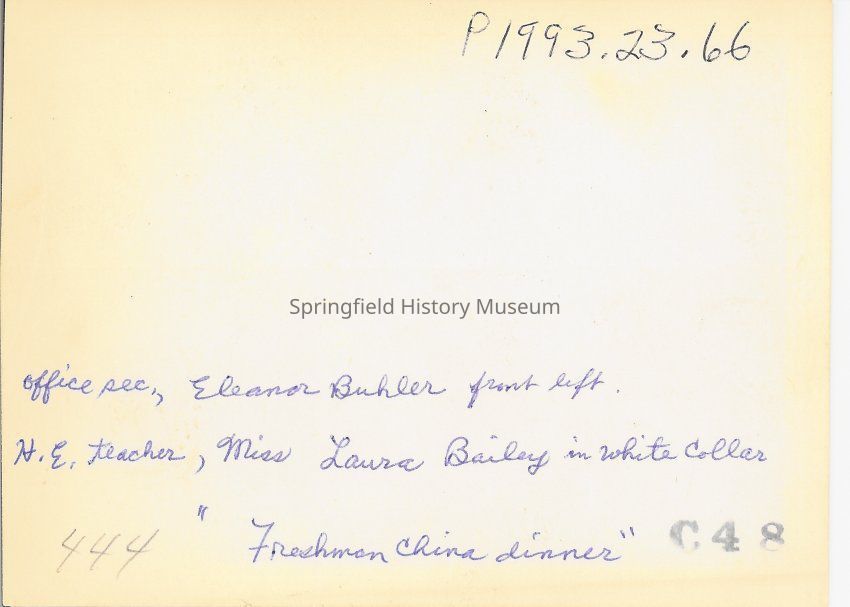 P1993.23.66
Springfield History Museum
office sec., Eleanor Buhler front left.
H.E. teacher, Miss Laura Bailey in white collar
"Freshman China dinner"
444
C48